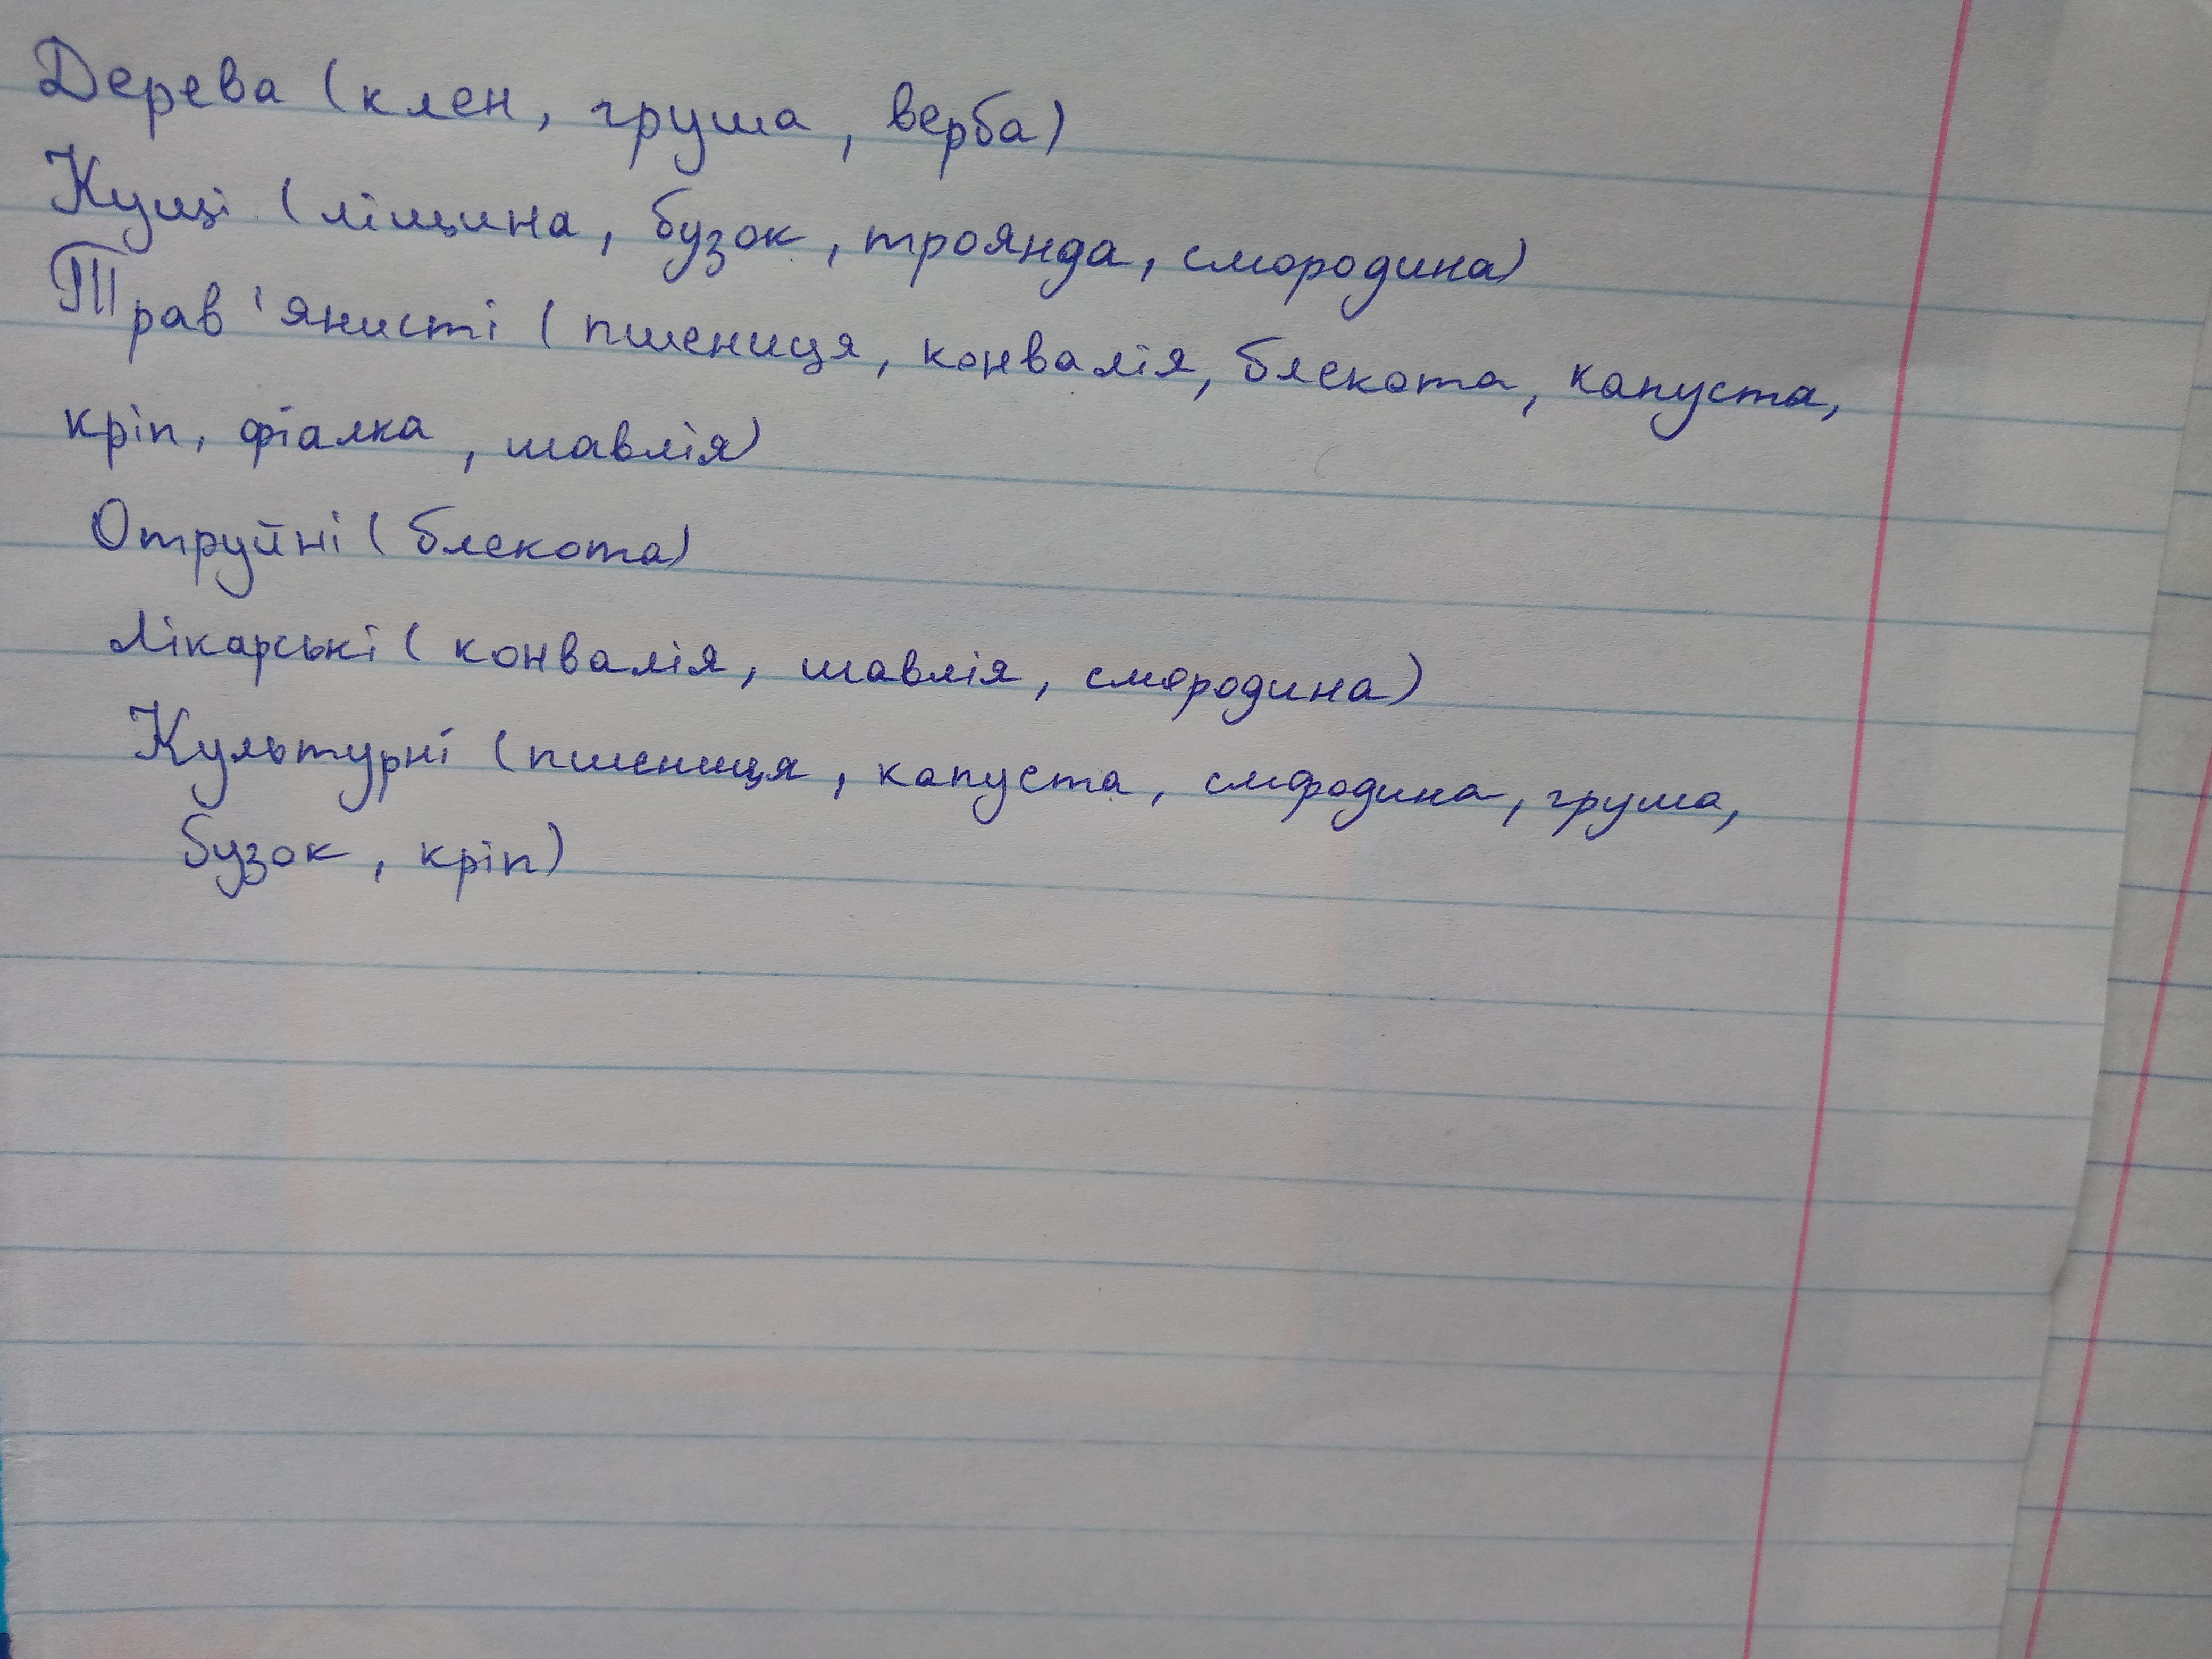 Дерева (клен, груша, верба)
Кущі (ліщина, бузок, троянда, смородина)
Трав'янисті (пшениця, конвалія, блекота, капуста,
кріп, фіалка, шавлія)
Отруйні (блекота)
Лікарські (конвалія, шавлія, смородина)
Культурні (пшениця, капуста, смородина, груша,
бузок, кріп)